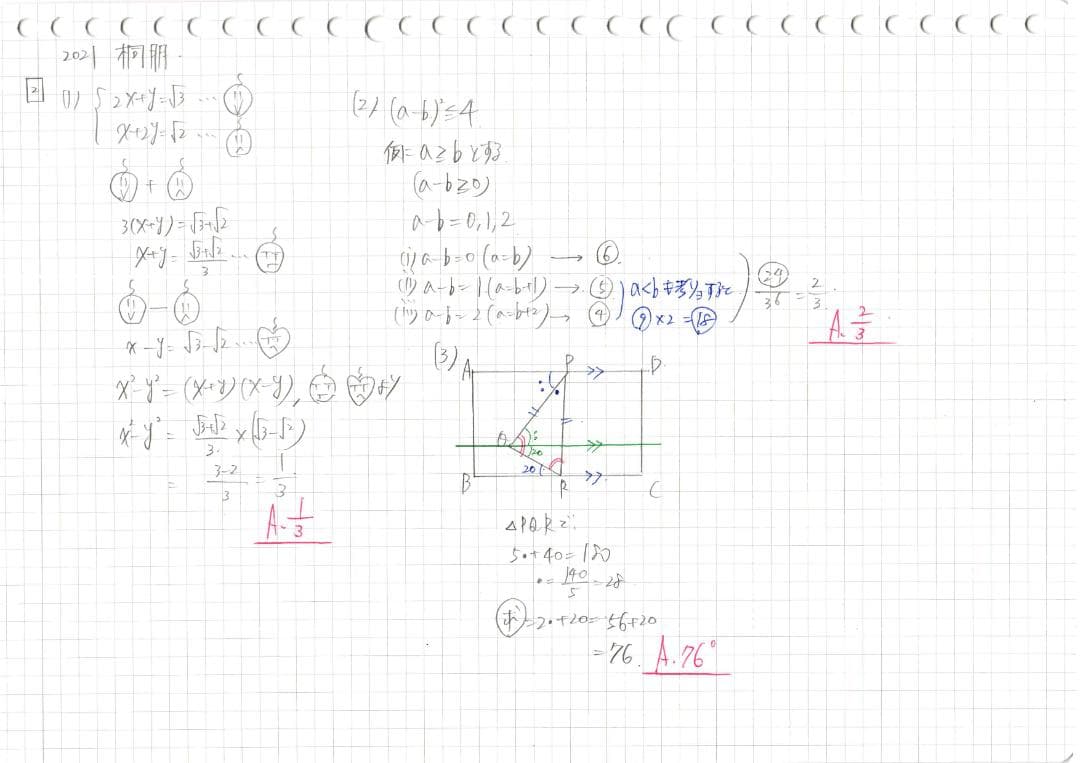 2021 桐朋.
2
(1) 2x+y=√3 …
x+2y=√2 …
+
3(x+y)=√3+√2
x+y=√3+√2/3 …
−
x−y=√3−√2 …
x²−y²=(x+y)(x−y), より
x²−y²=√3+√2/3×(√3−√2)
=3−2/3=1/3
A. 1/3
(2) (a−b)²≤4
仮に a≥bとする
(a−b≥0)
a−b=0,1,2
(i) a−b=0(a=b) → ⑥
(ii) a−b=1(a=b+1) → ⑤
(iii) a−b=2(a=b+2) → ④
a<bも考りょすると
⑨×2=⑱
㉔/36=2/3.
A. 2/3
(3)
A P D
Q 20
B 20 R C
△PQRで
5•+40=180
•=140/5=28
求=2•+20=56+20
=76. A. 76°